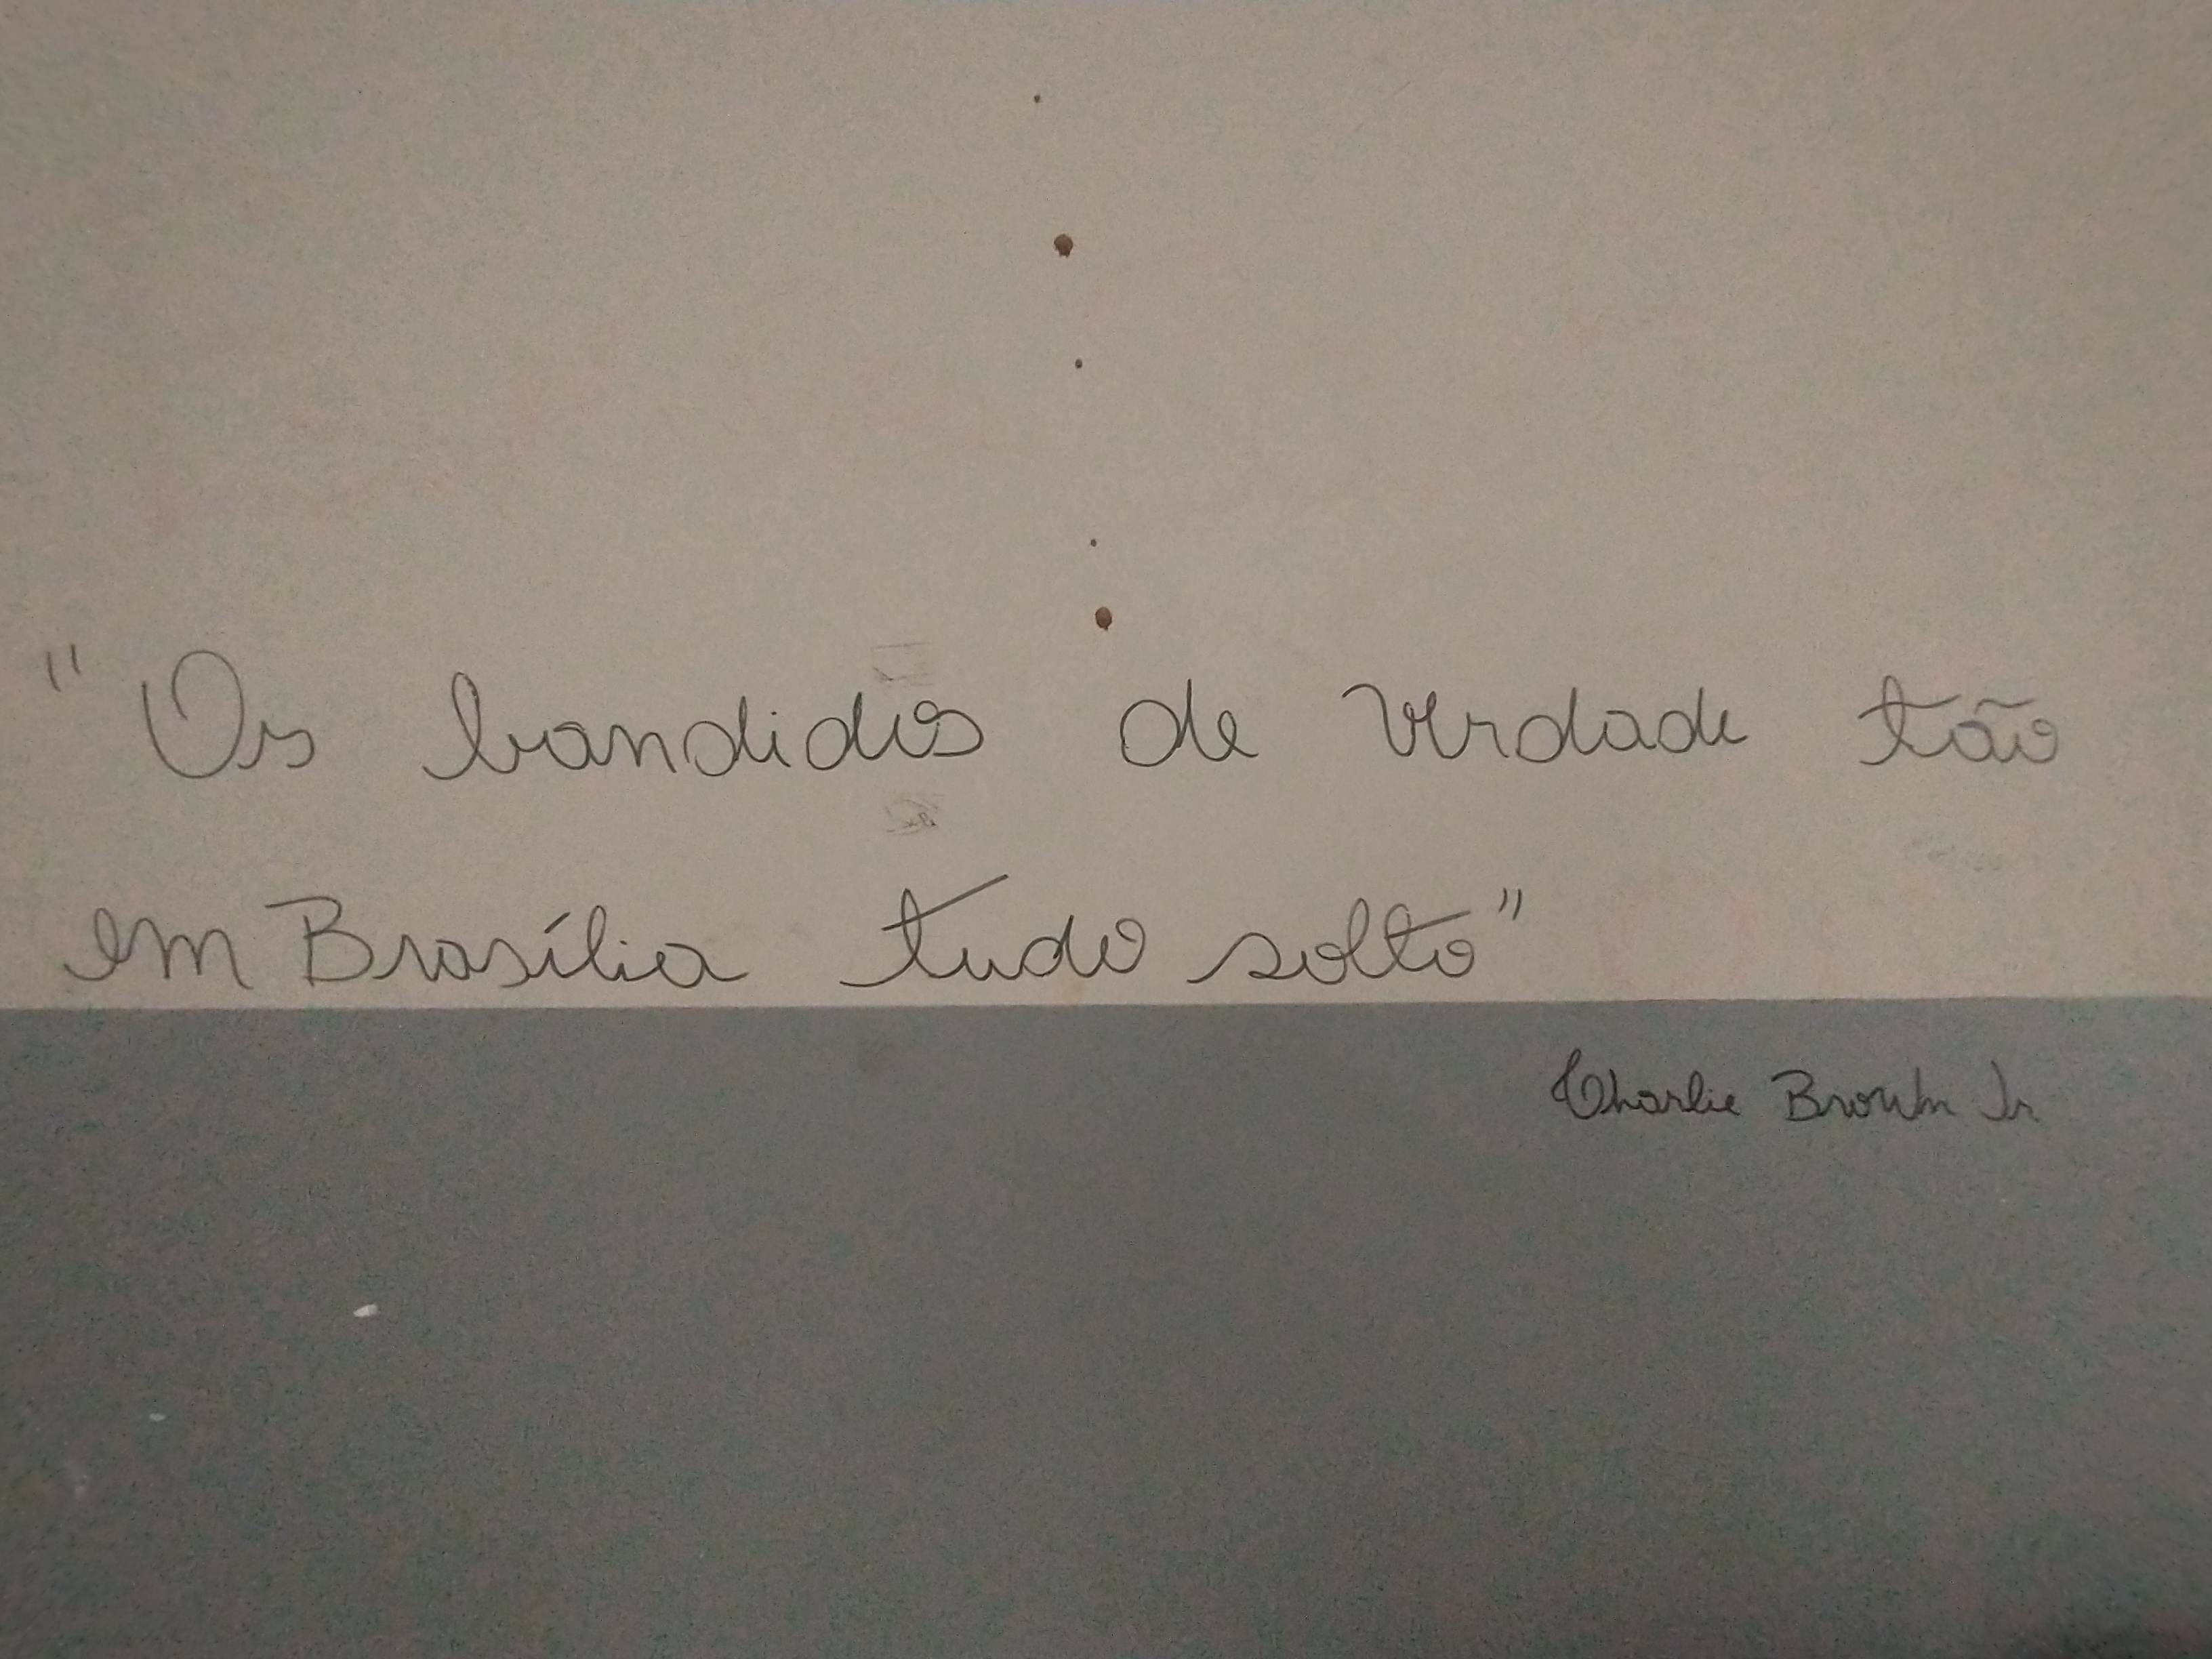 "Os bandidos de verdade tão
em Brasília tudo solto"
Charlie Brown Jr